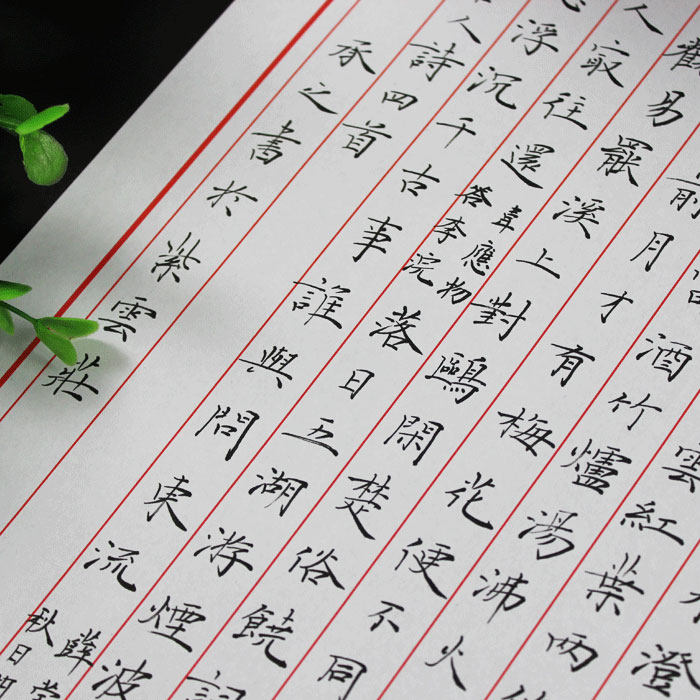 澄
雲紅葉兩
酒竹爐湯沸火
前月才有梅花便不同
觀易罷溪上對鷗閑楚俗饒詞
人最往還
韋應物
答李浣
落日五湖游煙波
浮沉千古事誰與問東流
薛
秋日
人詩四首
承之書於紫雲莊